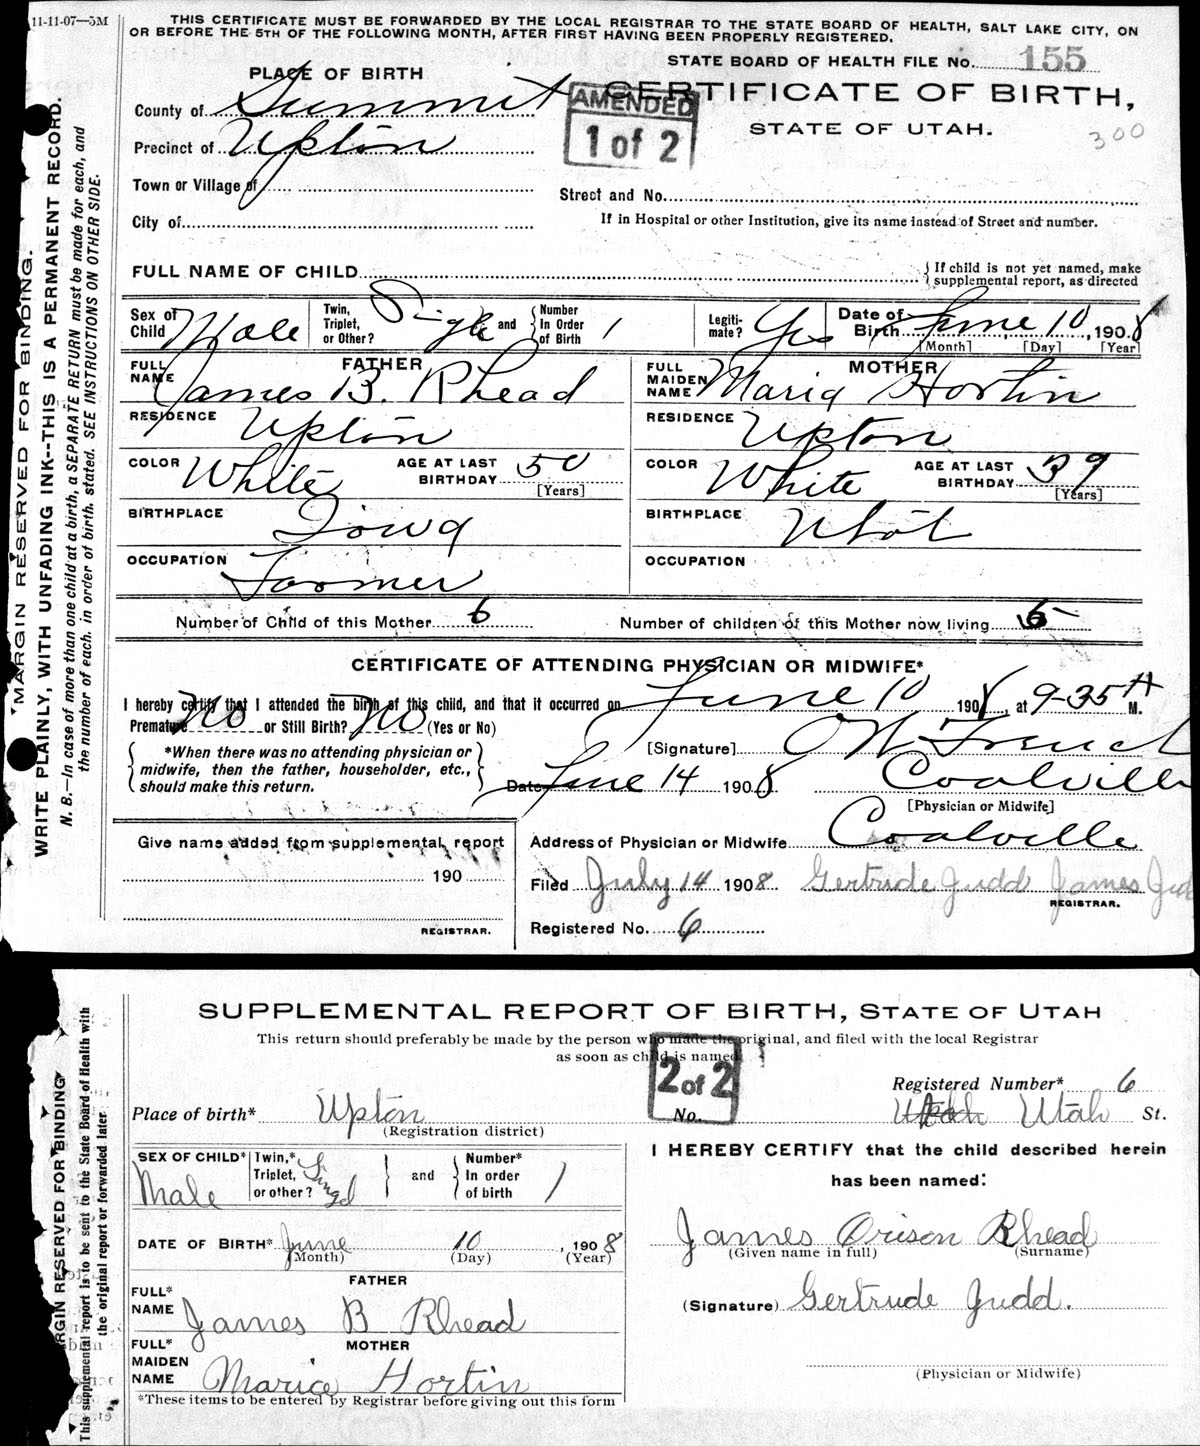 11-11-07—5M
THIS CERTIFICATE MUST BE FORWARDED BY THE LOCAL REGISTRAR TO THE STATE BOARD OF HEALTH, SALT LAKE CITY, ON
OR BEFORE THE 5TH OF THE FOLLOWING MONTH, AFTER FIRST HAVING BEEN PROPERLY REGISTERED.
STATE BOARD OF HEALTH FILE No. 155
PLACE OF BIRTH
CERTIFICATE OF BIRTH,
STATE OF UTAH.
300
AMENDED
1 of 2
County of Summit
Precinct of Upton
Town or Village of
Street and No.
City of
If in Hospital or other Institution, give its name instead of Street and number.
FULL NAME OF CHILD
{ If child is not yet named, make
supplemental report, as directed
Sex of Child Male
Twin, Triplet, or Other? Single and { Number In Order of Birth 1
Legiti-mate? Yes
Date of Birth June 10, 1908
[Month] [Day] [Year]
FATHER
FULL NAME James B. Rhead
MOTHER
FULL MAIDEN NAME Maria Hortin
RESIDENCE Upton
RESIDENCE Upton
COLOR White AGE AT LAST BIRTHDAY 50 [Years]
COLOR White AGE AT LAST BIRTHDAY 39 [Years]
BIRTHPLACE Iowa
BIRTHPLACE Utah
OCCUPATION Farmer
OCCUPATION
Number of Child of this Mother 6
Number of children of this Mother now living 5
CERTIFICATE OF ATTENDING PHYSICIAN OR MIDWIFE*
I hereby certify that I attended the birth of this child, and that it occurred on June 10 1908, at 9-35 A M.
Premature No or Still Birth? No (Yes or No)
*When there was no attending physician or
midwife, then the father, householder, etc.,
should make this return.
[Signature] O W French
Date June 14 1908 Coalville
[Physician or Midwife]
Give name added from supplemental report
190
REGISTRAR.
Address of Physician or Midwife Coalville
Filed July 14 1908 Gertrude Judd James Jud
REGISTRAR.
Registered No. 6
MARGIN RESERVED FOR BINDING.
WRITE PLAINLY, WITH UNFADING INK--THIS IS A PERMANENT RECORD.
N. B.—In case of more than one child at a birth, a SEPARATE RETURN must be made for each, and
the number of each, in order of birth, stated. SEE INSTRUCTIONS ON OTHER SIDE.
SUPPLEMENTAL REPORT OF BIRTH, STATE OF UTAH
This return should preferably be made by the person who made the original, and filed with the local Registrar
as soon as child is named
2 of 2
No.
Registered Number* 6
Place of birth* Upton Utah St.
(Registration district)
SEX OF CHILD* Male
Twin,* Triplet, or other? } and { Number* In order of birth 1
I HEREBY CERTIFY that the child described herein
has been named:
DATE OF BIRTH* June 10, 1908
(Month) (Day) (Year)
James Orison Rhead
(Given name in full) (Surname)
FATHER
FULL* NAME James B Rhead
(Signature) Gertrude Judd.
MOTHER
FULL* MAIDEN NAME Marice Hortin
(Physician or Midwife)
*These items to be entered by Registrar before giving out this form
MARGIN RESERVED FOR BINDING
This supplemental report is to be sent to the State Board of Health with
the original report or forwarded later